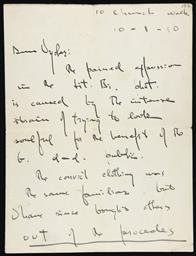 10 Church walk
10-8-10
Dear Vydes:
The pained expression
in the Lit. Bs. dat.
is caused by the intense
strain of trying to look
soulful for the benefit of the
b. d--d. public.
The convict clothing was
the same familiar but
I have since bought others
out of the proceeds